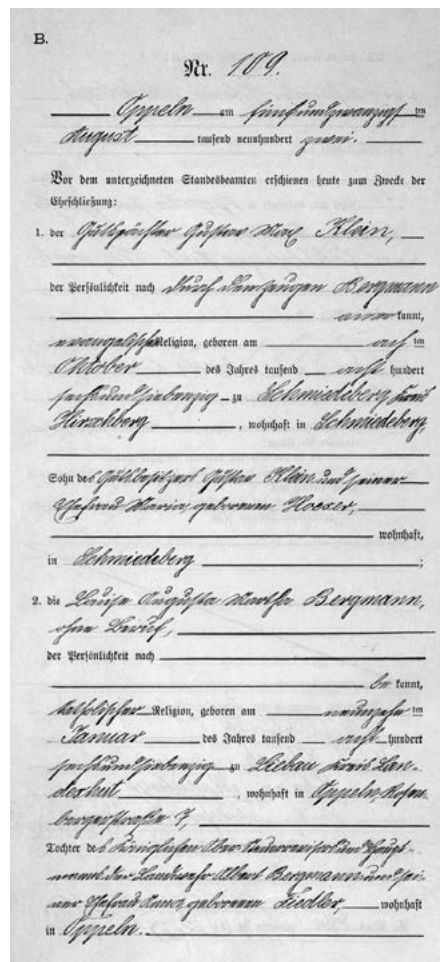 B.
Nr. 109.
Oppeln am fünfundzwanzigsten
August tausend neunhundert zwei.
Vor dem unterzeichneten Standesbeamten erschienen heute zum Zwecke der
Eheschließung:
1. der Gutspächter Gustav Max Klein,
der Persönlichkeit nach durch den Zeugen Bergmann
kannt,
evangelischer Religion, geboren am acht ten
Oktober des Jahres tausend acht hundert
sechsundsiebenzig zu Schmiedeberg Kreis
Hirschberg, wohnhaft in Schmiedeberg,
Sohn des Gutsbesitzers Gustav Klein und seiner
Ehefrau Maria, geborenen Hoeser,
wohnhaft,
in Schmiedeberg;
2. die Louise Augusta Martha Bergmann,
ohne Beruf,
der Persönlichkeit nach
be kannt,
katholischer Religion, geboren am neunzehn ten
Januar des Jahres tausend acht hundert
sechsundsiebenzig zu Liebau Kreis Lan-
deshut, wohnhaft in Oppeln, Rosen-
bergerstraße 7,
Tochter des Königlichen Ober-Steuerrevisors und Haupt-
manns der Landwehr Albert Bergmann und sei-
ner Ehefrau Anna, geborenen Fiedler, wohnhaft
in Oppeln.